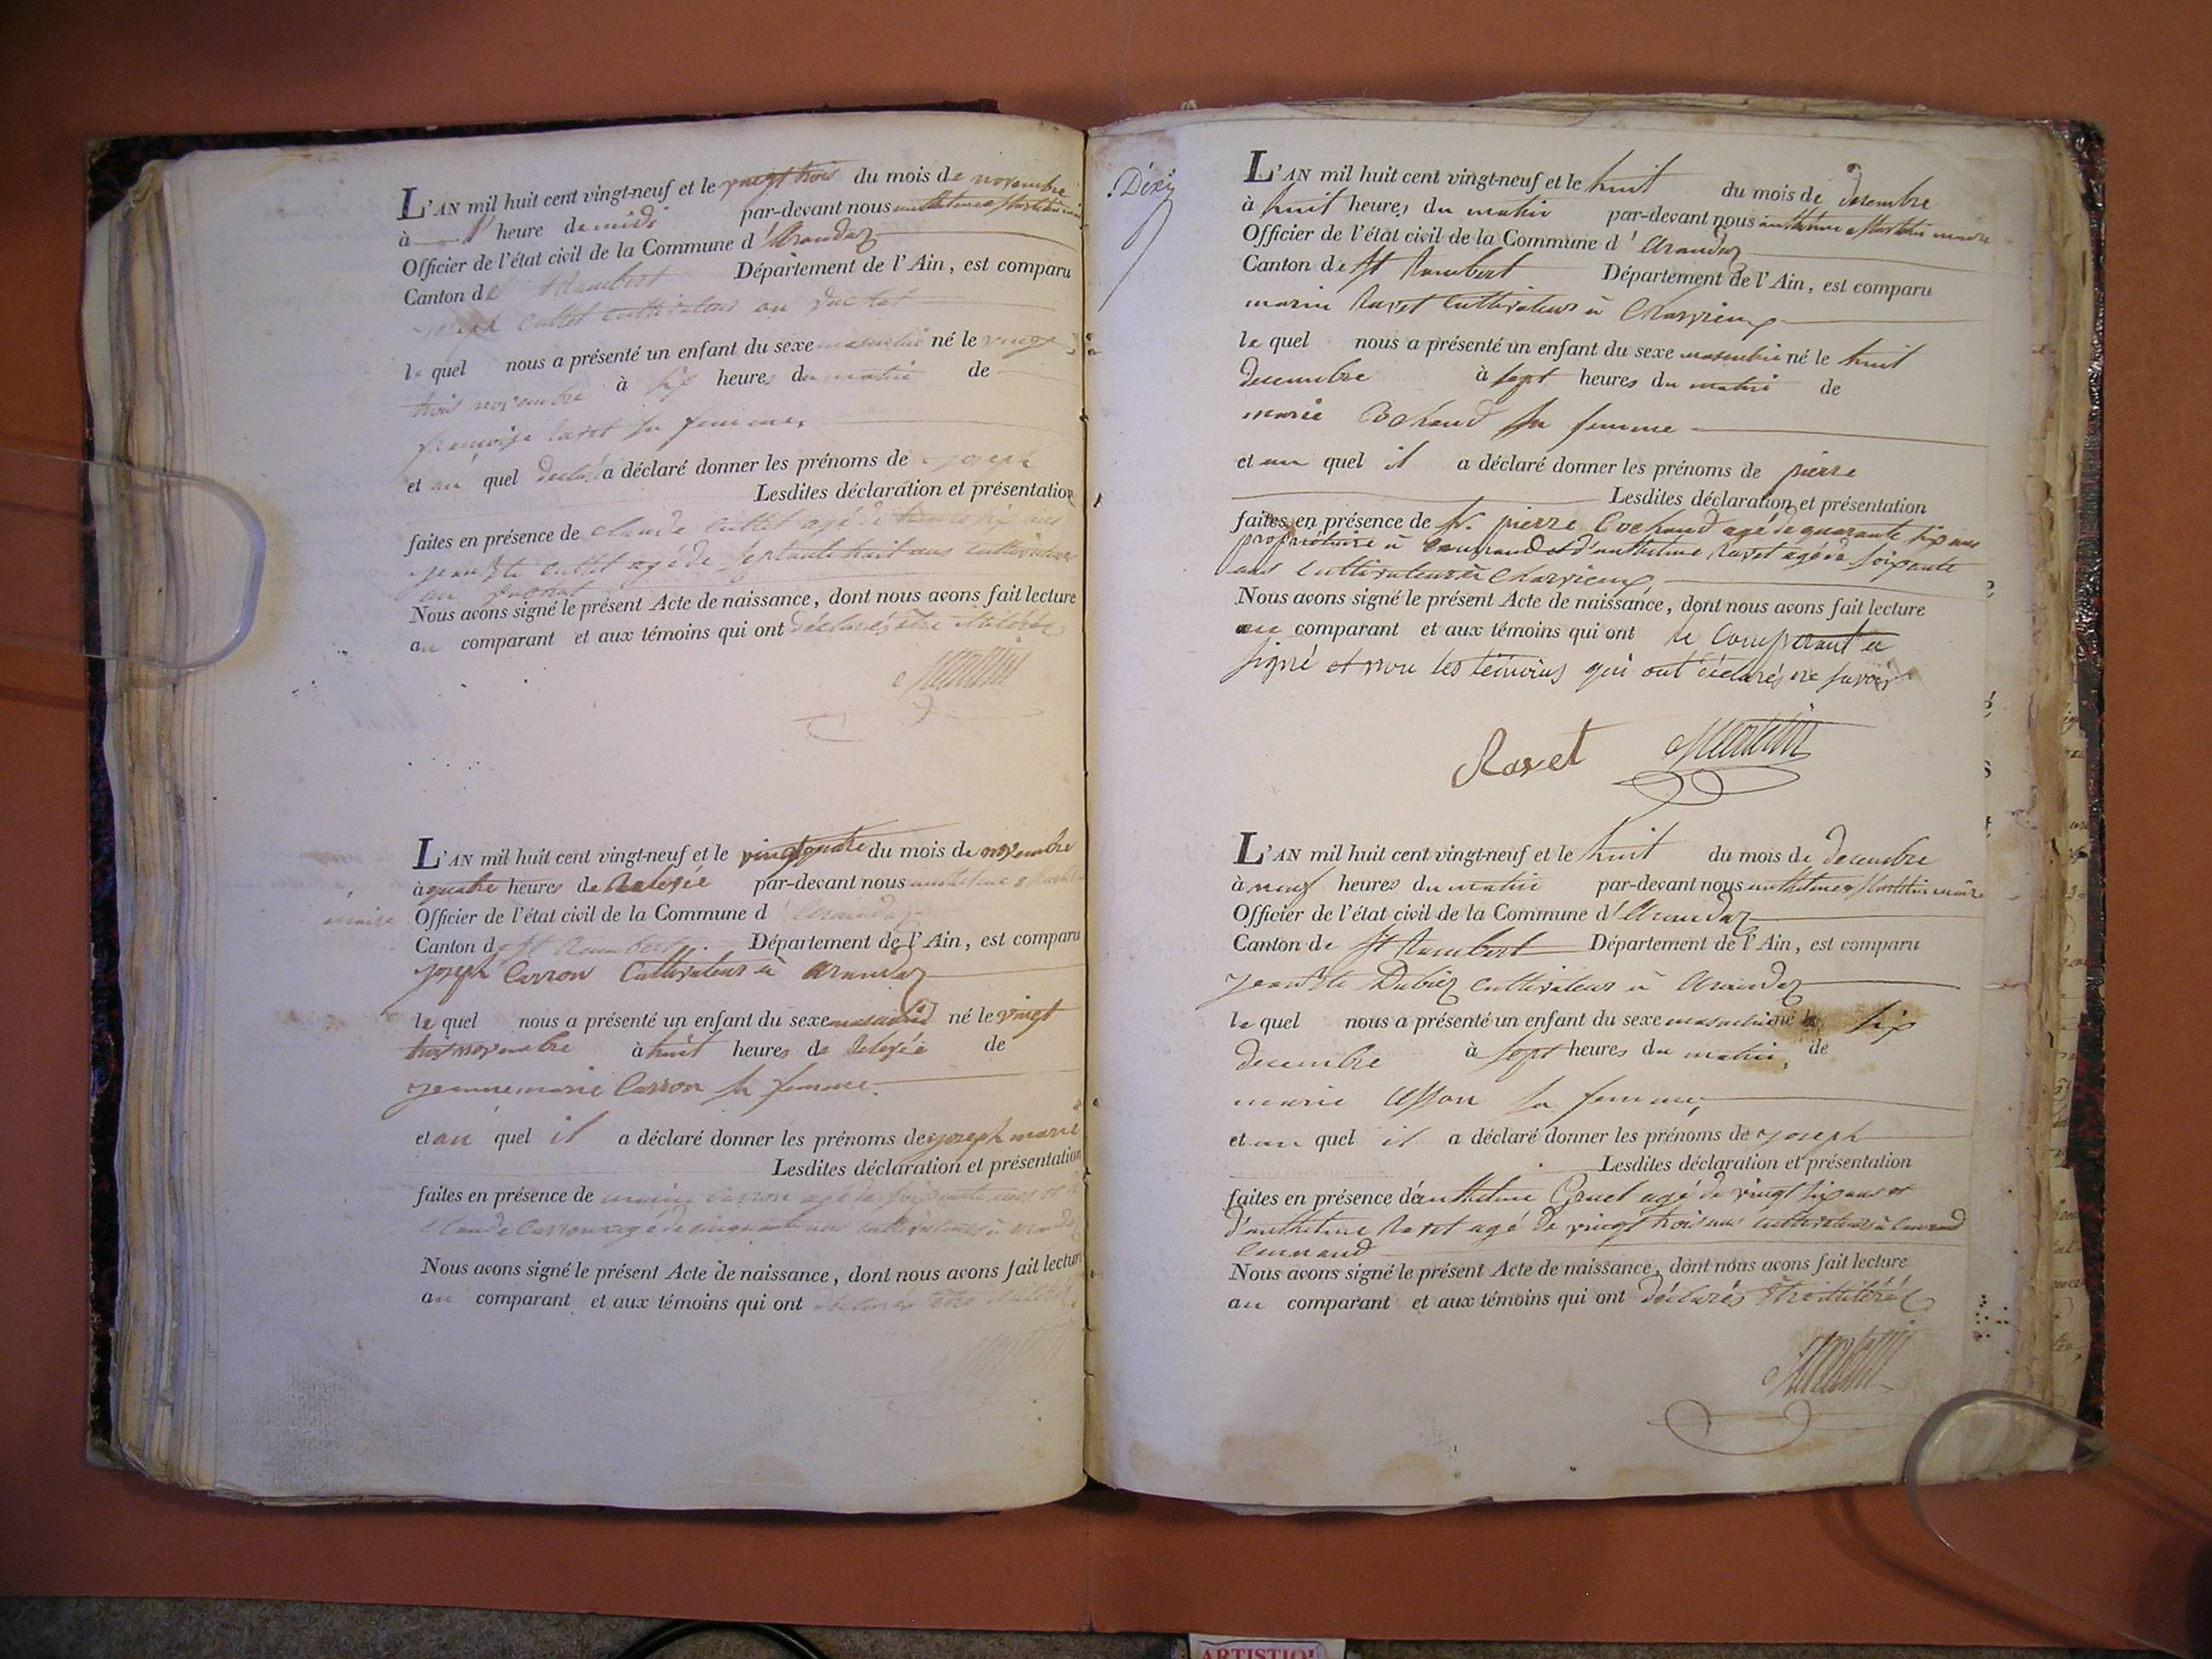 L'AN mil huit cent vingt-neuf et le vingt trois du mois de novembre
à heure de midi par-devant nous anthelme Martelin
Officier de l'état civil de la Commune d'Arandaz
Canton de St Rambert Département de l'Ain, est comparu
joseph cultivateur au
le quel nous a présenté un enfant du sexe masculin né le vingt
trois novembre à six heures du matin de
françoise ravet sa femme,
et au quel déclaré a déclaré donner les prénoms de joseph
Lesdites déclaration et présentation
faites en présence de claude agé de trente six ans
jean Bte agé de septante huit ans cultivateurs
au
Nous avons signé le présent Acte de naissance, dont nous avons fait lecture
au comparant et aux témoins qui ont déclarés être
Martelin
L'AN mil huit cent vingt-neuf et le vingtquatre du mois de novembre
à quatre heures de Relevée par-devant nous anthelme
maire Officier de l'état civil de la Commune d'Arandaz
Canton de St Rambert Département de l'Ain, est comparu
joseph Carron Cultivateur à arandaz
le quel nous a présenté un enfant du sexe masculin né le vingt
trois novembre à huit heures de Relevée de
jeannemarie Carron sa femme.
et au quel il a déclaré donner les prénoms de joseph marie
Lesdites déclaration et présentation
faites en présence de Carron agé de soixante ans et
Claude Carron agé de cinquante ans cultivateurs à
Nous avons signé le présent Acte de naissance, dont nous avons fait lecture
au comparant et aux témoins qui ont déclarés être
L'AN mil huit cent vingt-neuf et le huit du mois de decembre
à huit heures du matin par-devant nous anthelme Martelin maire
Officier de l'état civil de la Commune d'Arandaz
Canton de St Rambert Département de l'Ain, est comparu
marin Ravet Cultivateur à Charvieux
le quel nous a présenté un enfant du sexe masculin né le huit
decembre à sept heures du matin de
marie Bochaud sa femme
et au quel il a déclaré donner les prénoms de pierre
Lesdites déclaration et présentation
faites en présence de Sr. pierre agé de quarante six ans
propriétaire à et d'anthelme Ravet agé de soixante
ans cultivateur à Charvieux
Nous avons signé le présent Acte de naissance, dont nous avons fait lecture
au comparant et aux témoins qui ont le Comparant a
signé et non les témoins qui ont déclarés ne savoir
Ravet Martelin
L'AN mil huit cent vingt-neuf et le huit du mois de decembre
à neuf heures du matin par-devant nous anthelme Martelin maire
Officier de l'état civil de la Commune d'Arandaz
Canton de St Rambert Département de l'Ain, est comparu
jean Bte Dubiez cultivateur à Arandaz
le quel nous a présenté un enfant du sexe masculin né le six
decembre à sept heures du matin, de
marie sa femme,
et au quel il a déclaré donner les prénoms de joseph
Lesdites déclaration et présentation
faites en présence d'anthelme Gruel agé de vingt six ans et
d'anthelme Ravet agé de vingt trois ans cultivateurs à
Nous avons signé le présent Acte de naissance, dont nous avons fait lecture
au comparant et aux témoins qui ont déclarés être
Martelin
ARTISTIQ